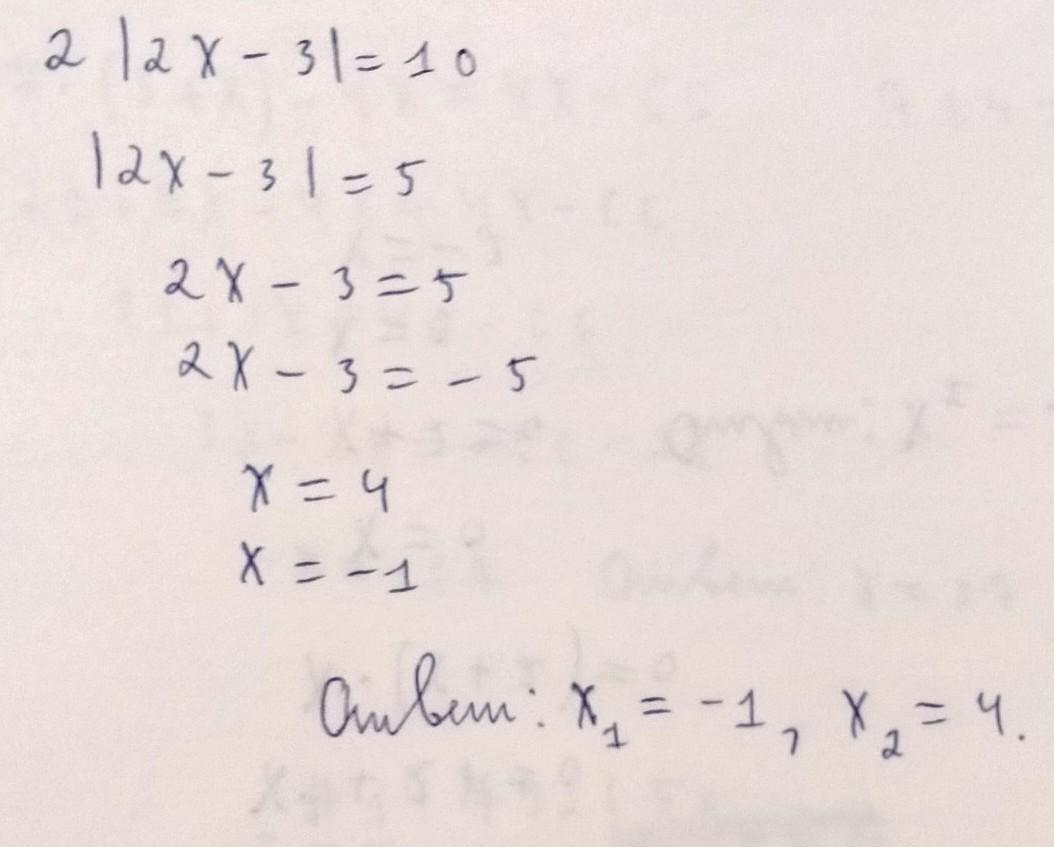 2 |2x - 3| = 10
|2x - 3| = 5
2x - 3 = 5
2x - 3 = - 5
x = 4
x = -1
Ответ: x₁ = -1, x₂ = 4.